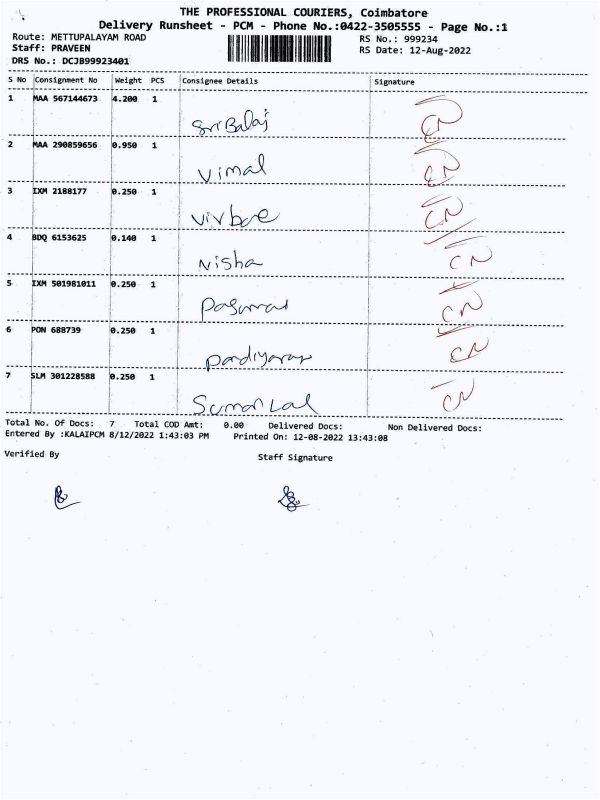 THE PROFESSIONAL COURIERS, Coimbatore
Delivery Runsheet - PCM - Phone No.:0422-3505555 - Page No.:1
Route: METTUPALAYAM ROAD RS No.: 999234
Staff: PRAVEEN RS Date: 12-Aug-2022
DRS No.: DCJB99923401
S No Consignment No Weight PCS Consignee Details Signature
1 MAA 567144673 4.200 1
Sri Balaj CN
2 MAA 290859656 0.950 1
Vimal CN
3 IXM 2188177 0.250 1
CN
4 BDQ 6153625 0.140 1
Nisha CN
5 IXM 501981011 0.250 1
CN
6 PON 688739 0.250 1
CN
7 SLM 301228588 0.250 1
Suman Lal CN
Total No. Of Docs: 7 Total COD Amt: 0.00 Delivered Docs: Non Delivered Docs:
Entered By :KALAIPCM 8/12/2022 1:43:03 PM Printed On: 12-08-2022 13:43:08
Verified By Staff Signature